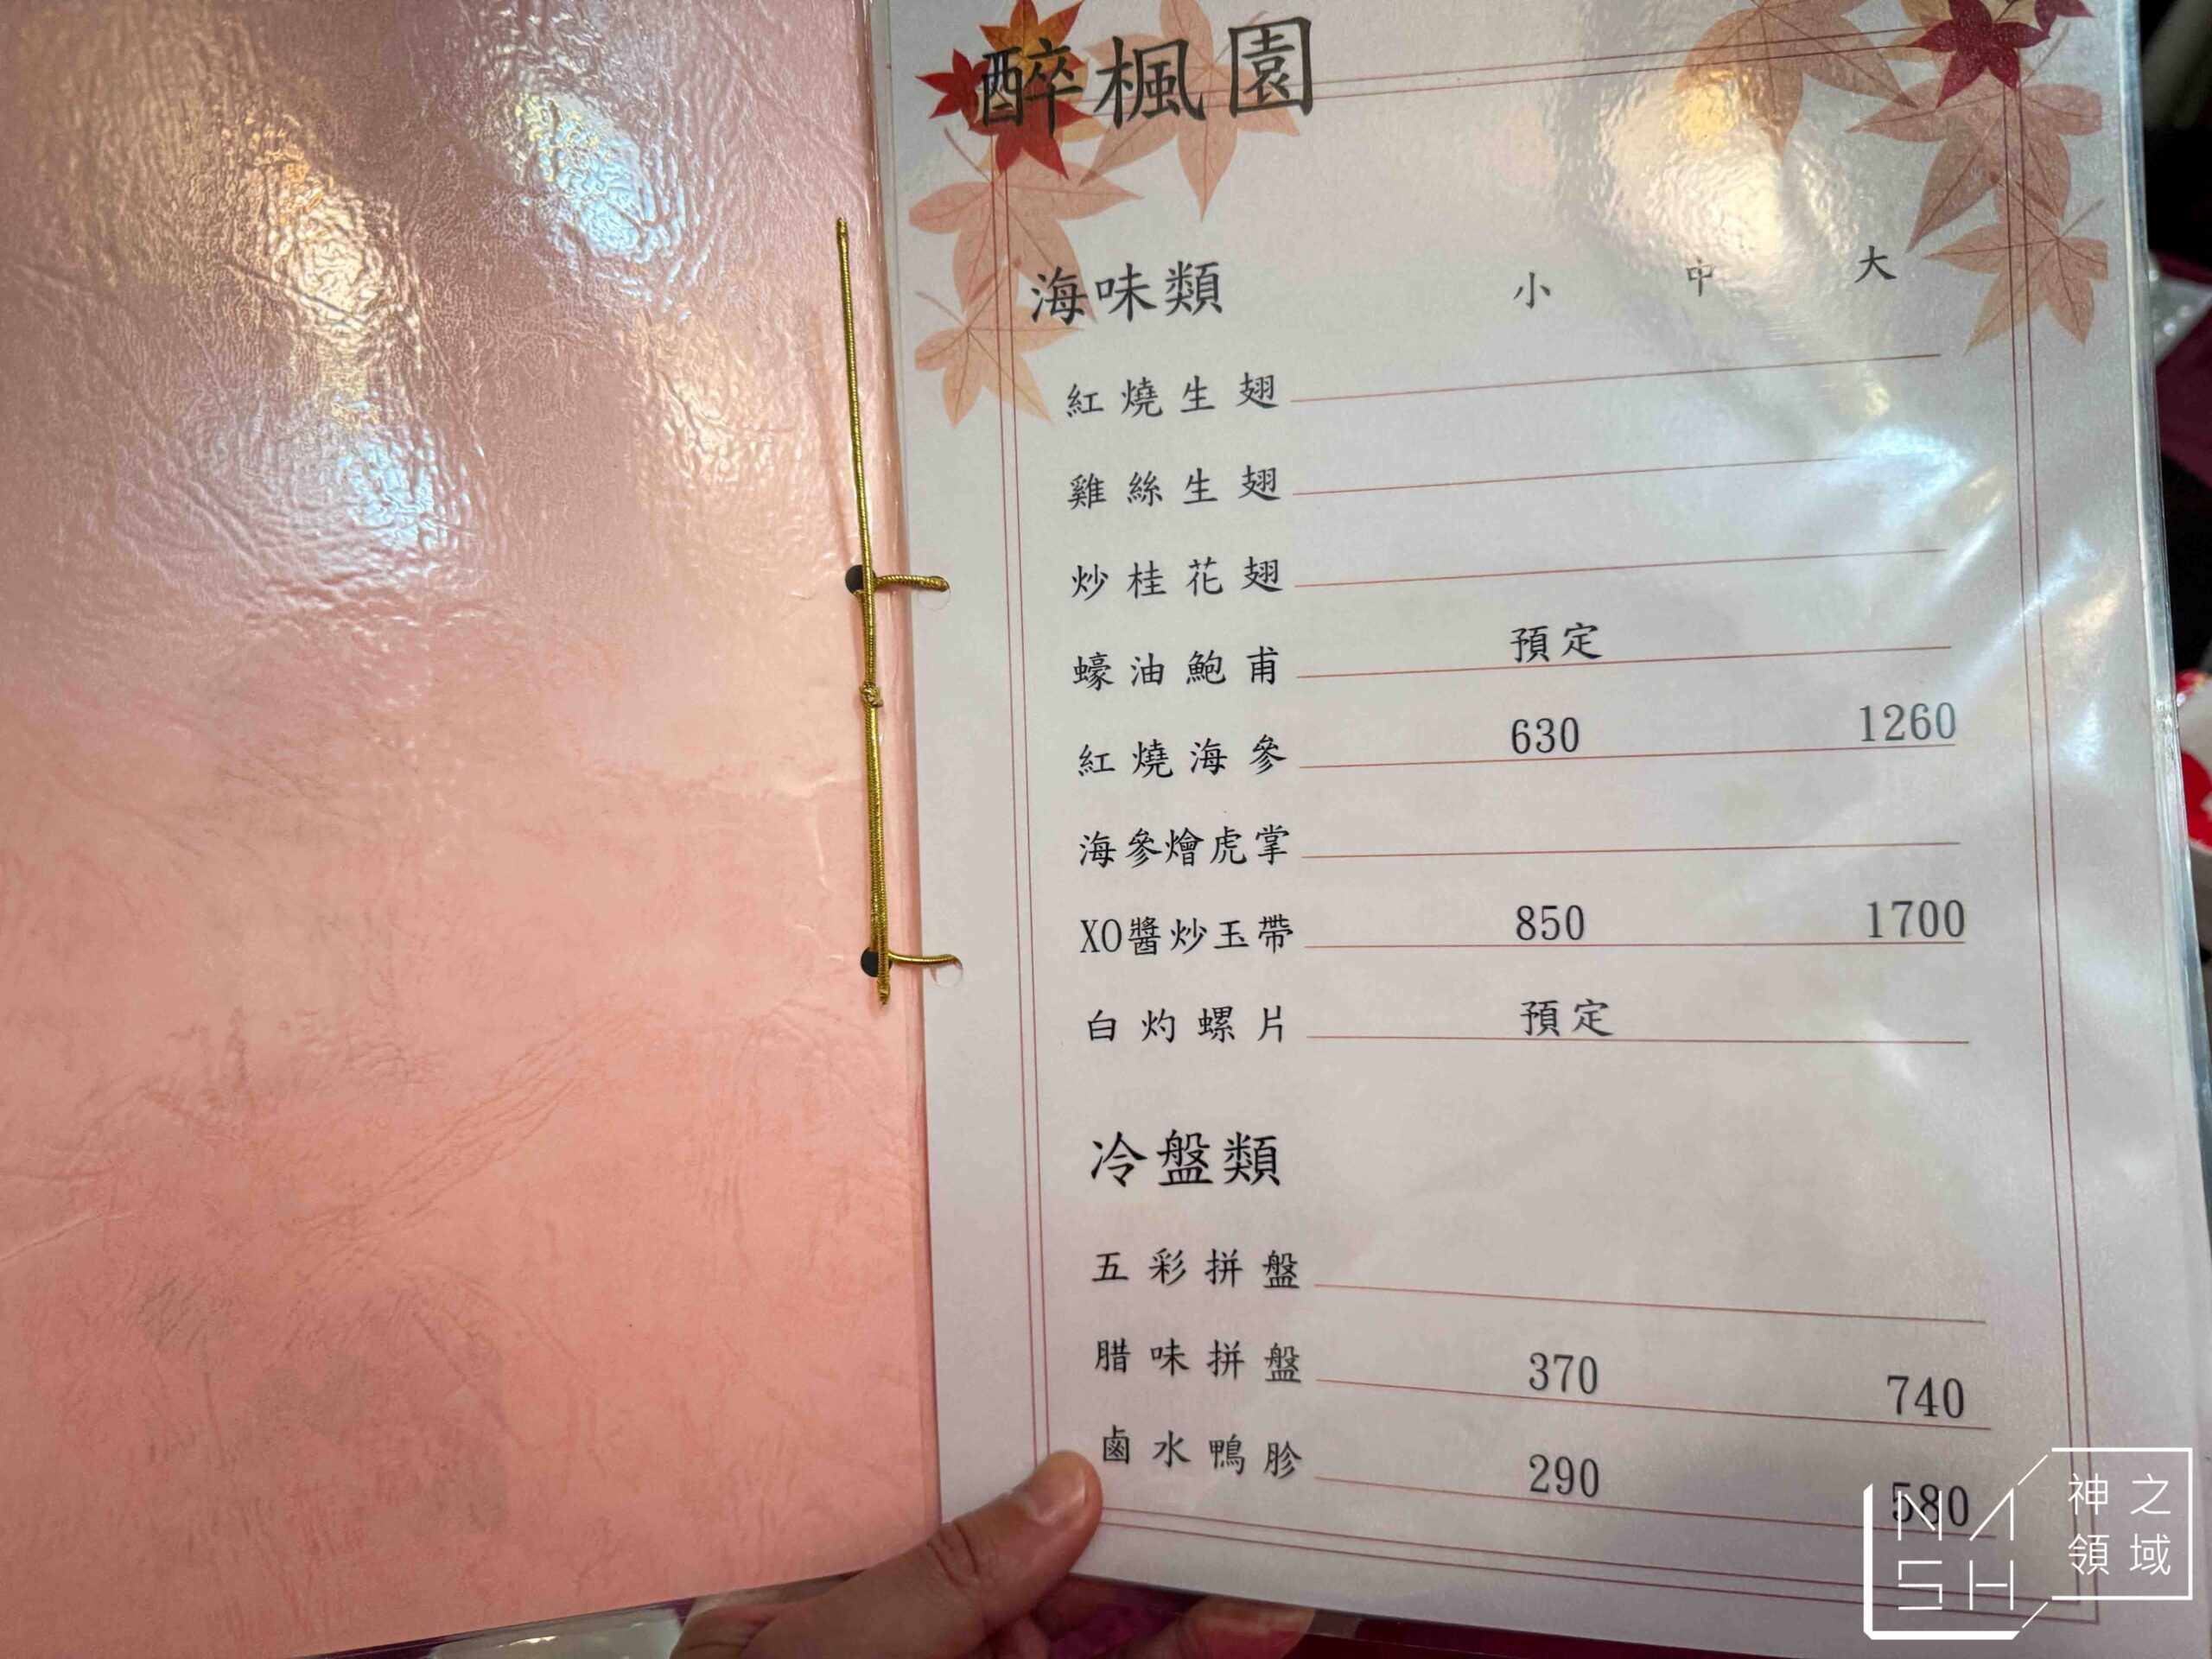 醉楓園
海味類 小 中 大
紅燒生翅
雞絲生翅
炒桂花翅
蠔油鮑甫 預定
紅燒海參 630 1260
海參燴虎掌
XO醬炒玉帶 850 1700
白灼螺片 預定
冷盤類
五彩拼盤
腊味拼盤 370 740
鹵水鴨胗 290 580
NASH 神之領域